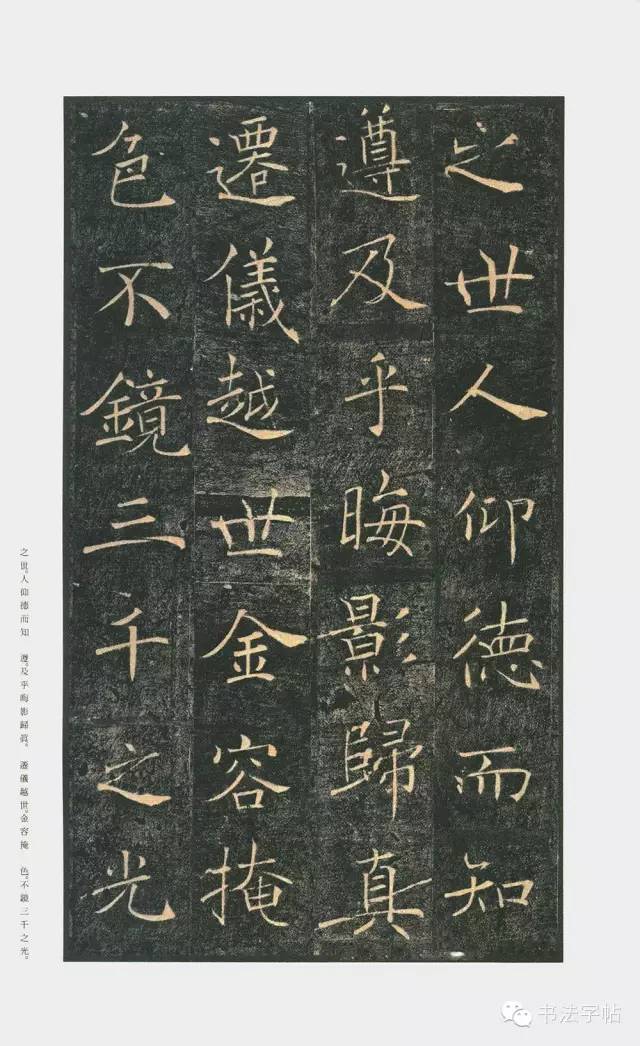 之世人仰德而知
遵及乎晦影歸真
遷儀越世金容掩
色不鏡三千之光
之世。人仰德而知 遵。及乎晦影歸真。 遷儀越世。金容掩 色。不鏡三千之光。
书法字帖